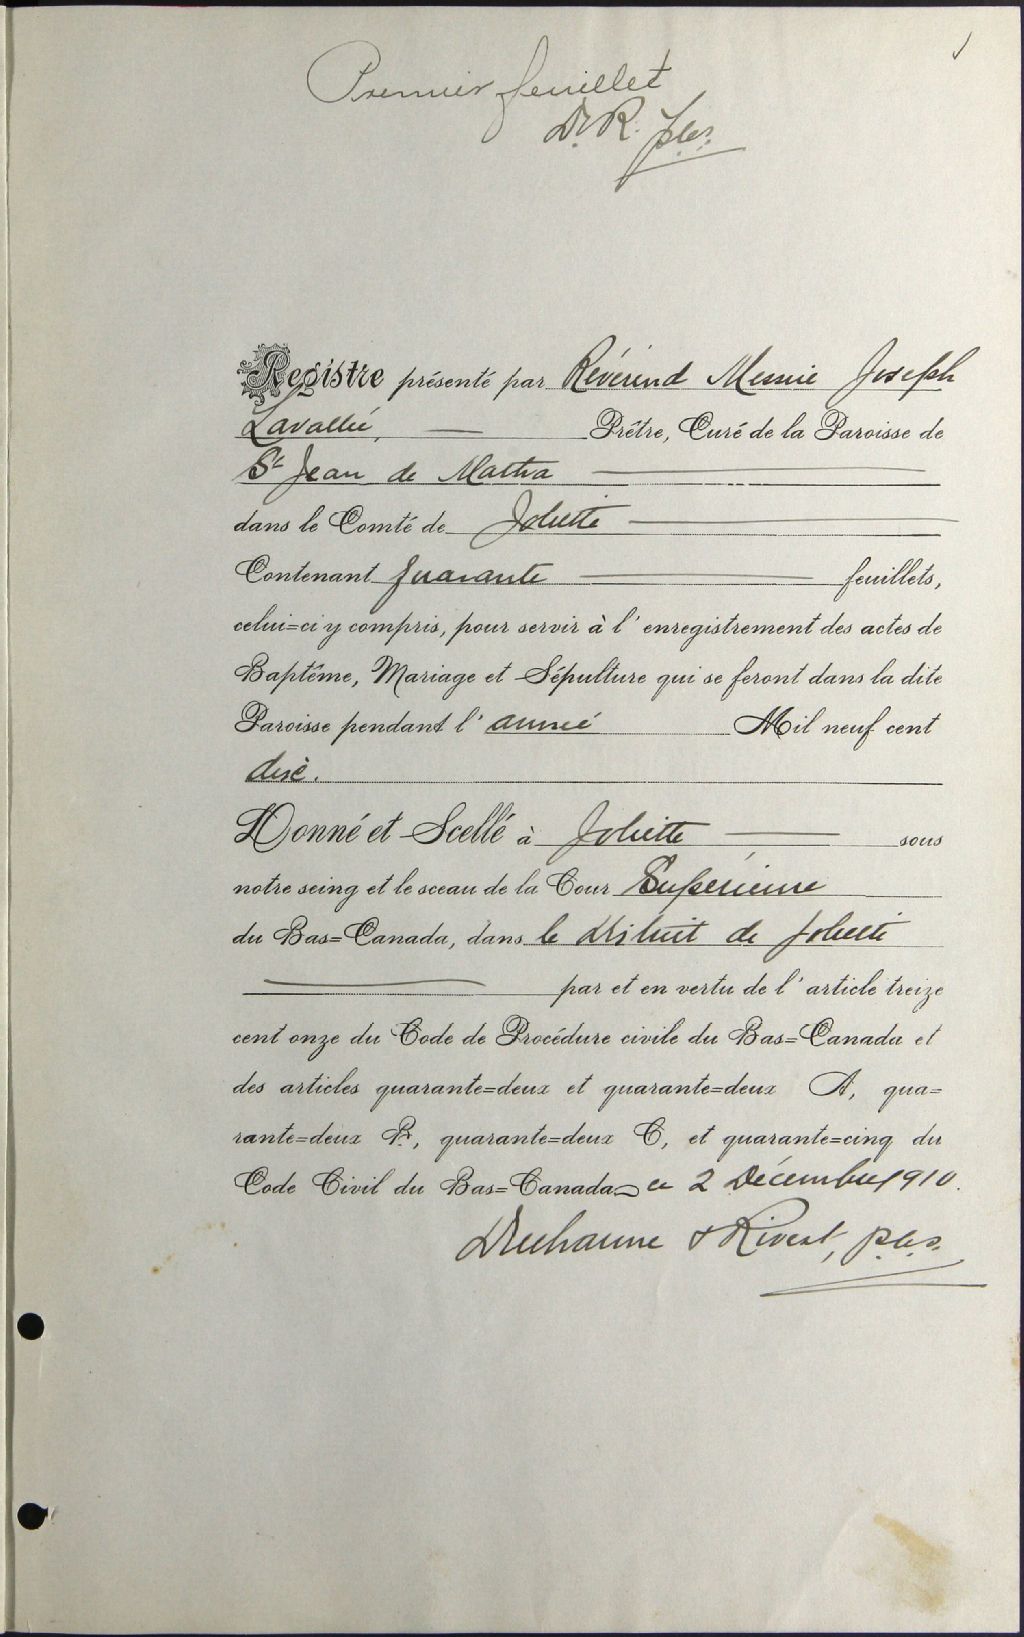 1
Premier feuillet
D. & R. p.c.s.
Registre présenté par Révérend Messire Joseph
Lavallée, — Prêtre, Curé de la Paroisse de
St Jean de Matha —
dans le Comté de Joliette —
Contenant quarante — feuillets,
celui=ci y compris, pour servir à l'enregistrement des actes de
Baptême, Mariage et Sépulture qui se feront dans la dite
Paroisse pendant l'année Mil neuf cent
dix.
Donné et Scellé à Joliette — sous
notre seing et le sceau de la Cour Supérieure
du Bas=Canada, dans le district de Joliette
— par et en vertu de l'article treize
cent onze du Code de Procédure civile du Bas=Canada et
des articles quarante=deux et quarante=deux A, qua=
rante=deux B, quarante=deux C, et quarante=cinq du
Code Civil du Bas=Canada ce 2 Décembre 1910.
Ducharme & Rivest, p.c.s.